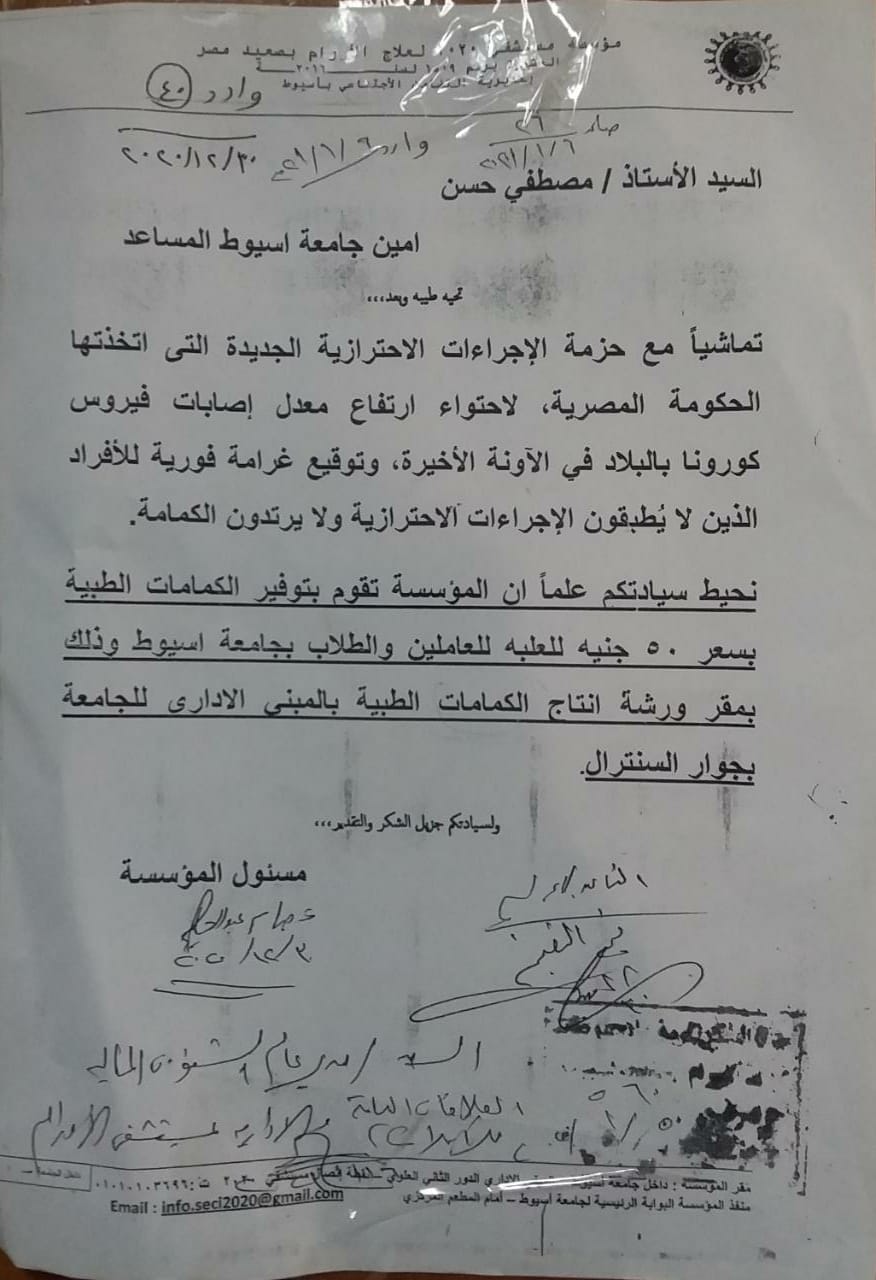 مؤسسة مستشفى ٢٠٢٠ لعلاج الأورام بصعيد مصر
بأسيوط
وارد ٤٠
صادر ٢٦
٢٠٢١/١/٦
وارد ٢١/١/٦
٢٠٢٠/١٢/٣٠
السيد الأستاذ / مصطفي حسن
امين جامعة اسيوط المساعد
تحيه طيبه وبعد،،،
تماشياً مع حزمة الإجراءات الاحترازية الجديدة التى اتخذتها
الحكومة المصرية، لاحتواء ارتفاع معدل إصابات فيروس
كورونا بالبلاد في الآونة الأخيرة، وتوقيع غرامة فورية للأفراد
الذين لا يُطبقون الإجراءات الاحترازية ولا يرتدون الكمامة.
نحيط سيادتكم علماً ان المؤسسة تقوم بتوفير الكمامات الطبية
بسعر ٥٠ جنيه للعلبه للعاملين والطلاب بجامعة اسيوط وذلك
بمقر ورشة انتاج الكمامات الطبية بالمبني الادارى للجامعة
بجوار السنترال.
ولسيادتكم جزيل الشكر والتقدير،،،
مسئول المؤسسة
السيد / مدير عام الشئون المالية
العلاقات العامة
والادارية لمستشفى الأورام
مقر المؤسسة : داخل جامعة أسيوط الادارى الدور الثاني العلوي
منفذ المؤسسة البوابة الرئيسية لجامعة أسيوط – أمام المطعم المركزي
Email : info.seci2020@gmail.com